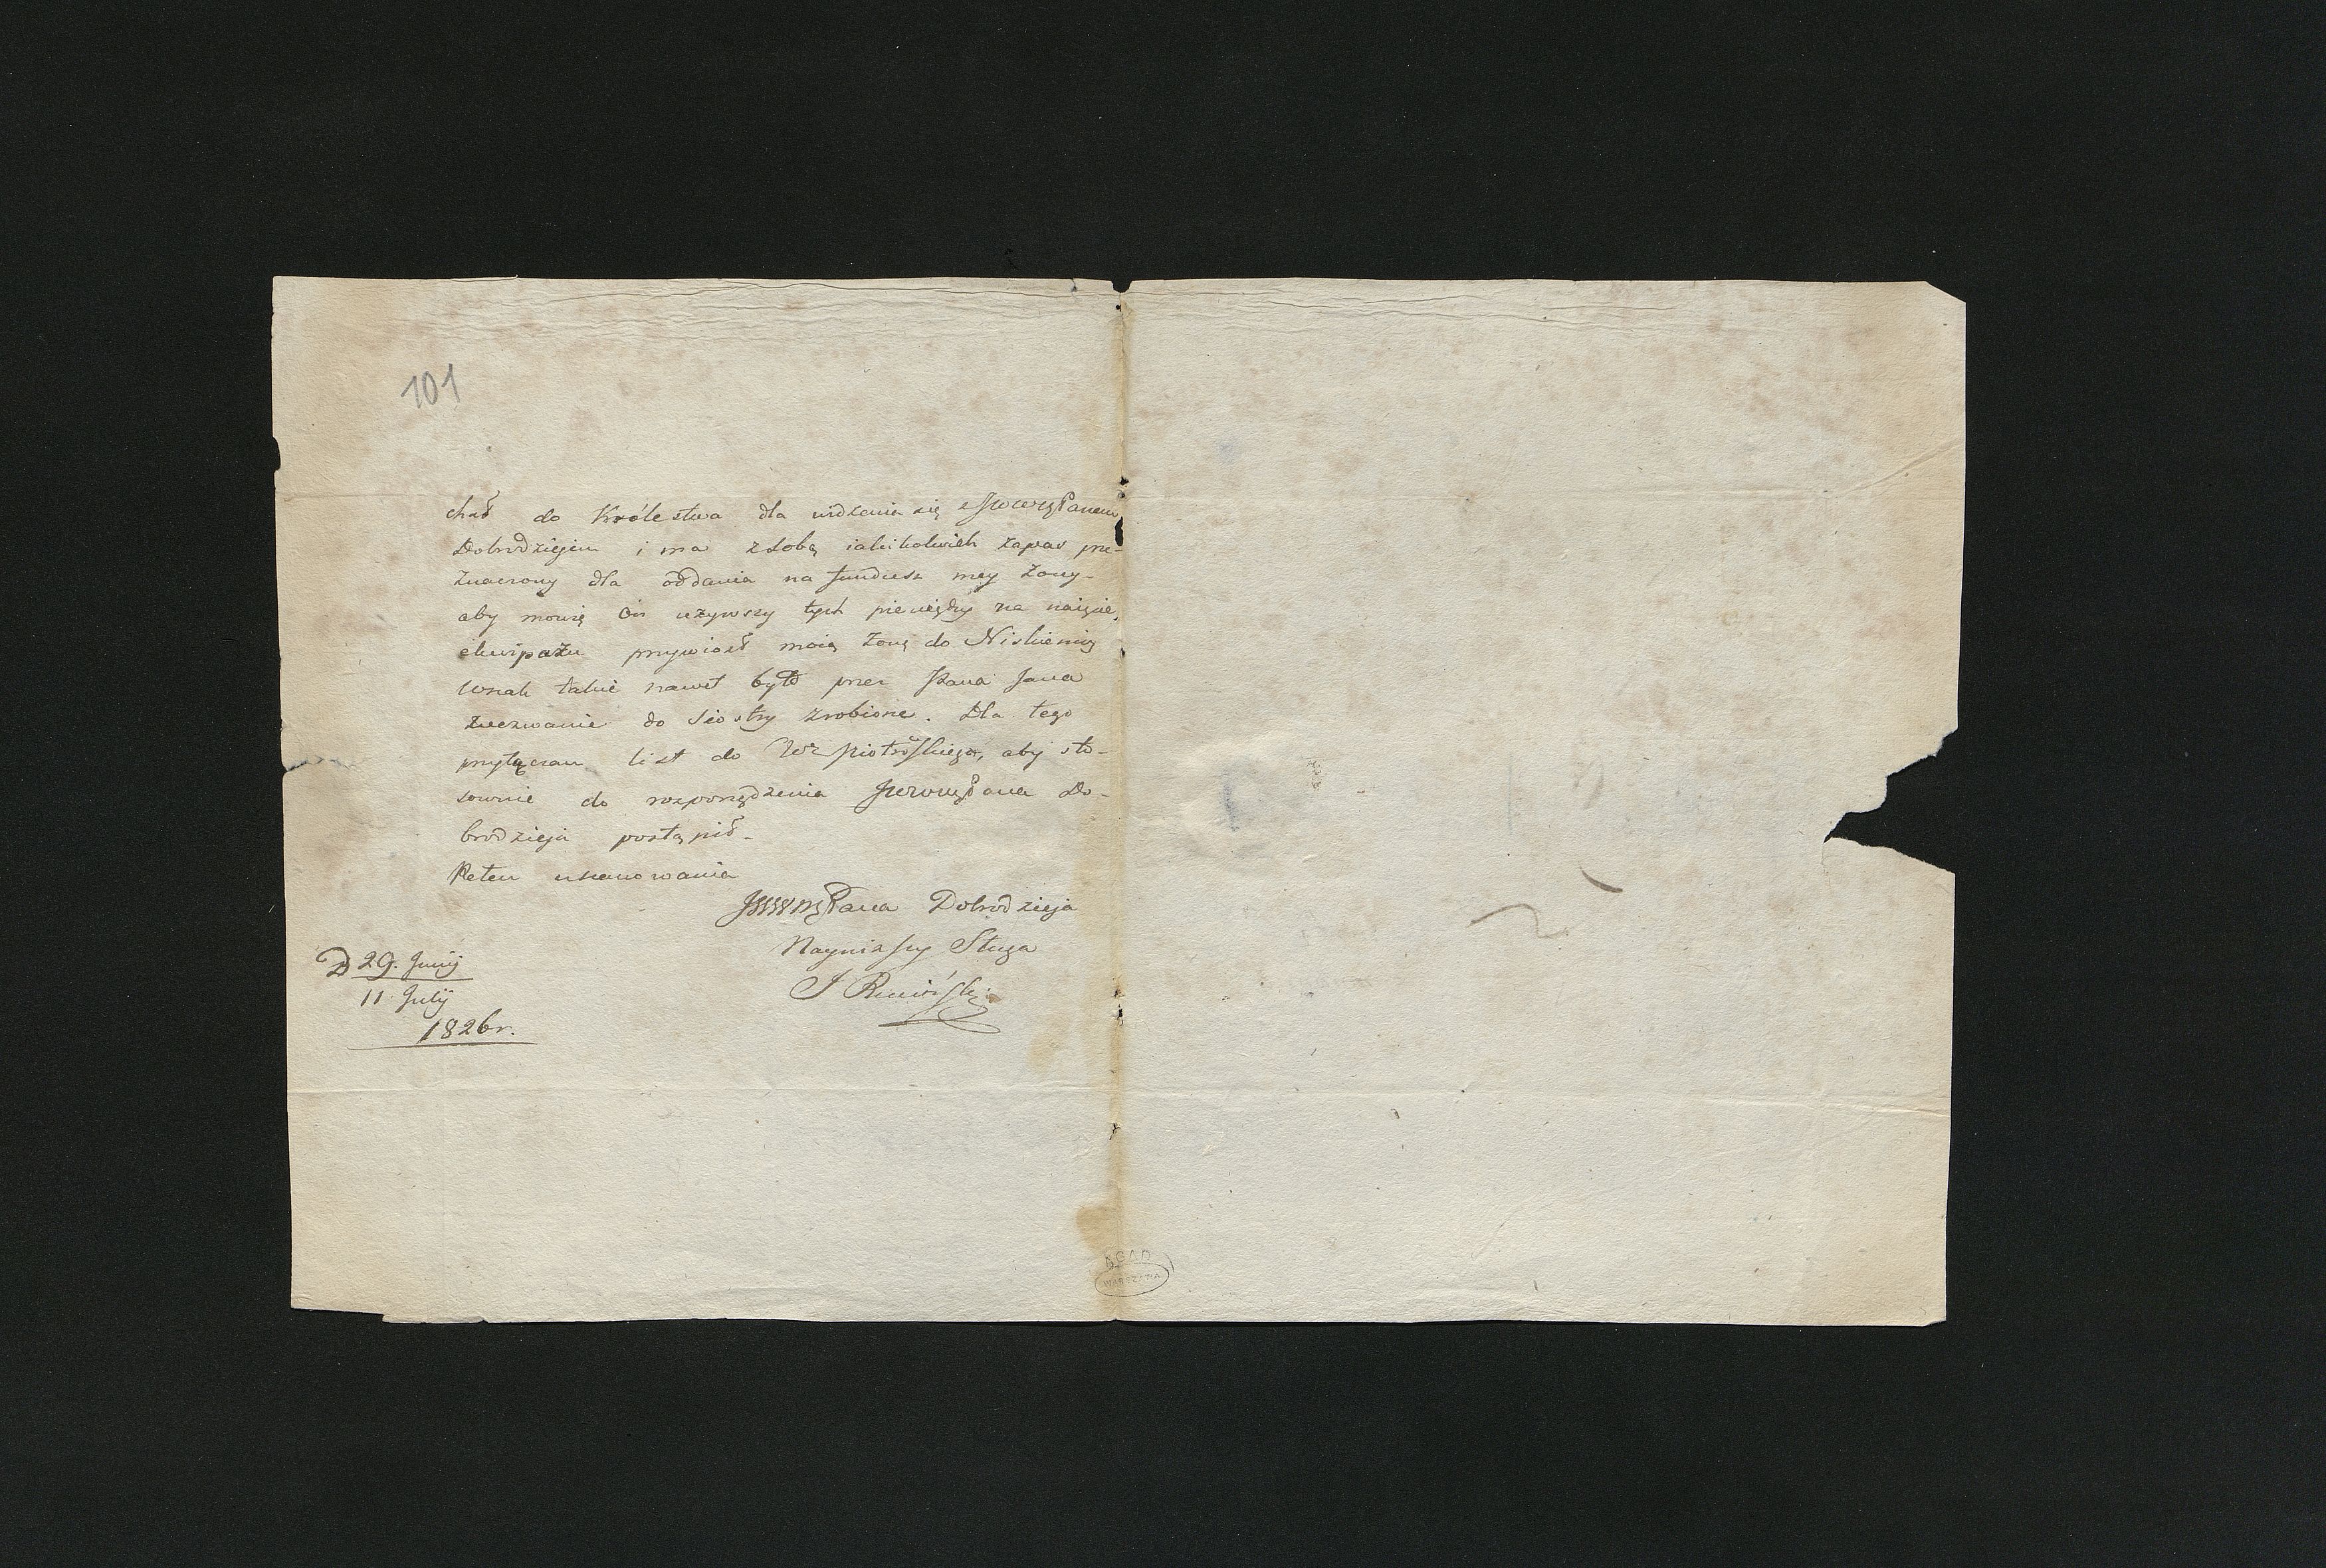 101
chał do Królestwa dla widzenia się z JWWMPanem
Dobrodziejem i ma z sobą iakikolwiek zapas prze-
znaczony dla oddania na fundusz mey żony -
aby mowię On używszy tych pieniędzy na naięcie
ekwipażu przywiozł moię żonę do Niskienicz
Wszak takie nawet było przez Pana Jana
wezwanie do Siostry zrobione. Dla tego
przyłączam list do aby sto-
sownie do rozporządzenia JWWMPana Do-
brodzieja postąpił -
Pełen uszanowania
JWWMPana Dobrodzieja
Nayniższy Sługa
J
D 29. Junij
11 July
1826 r.
AGAD
WARSZAWA